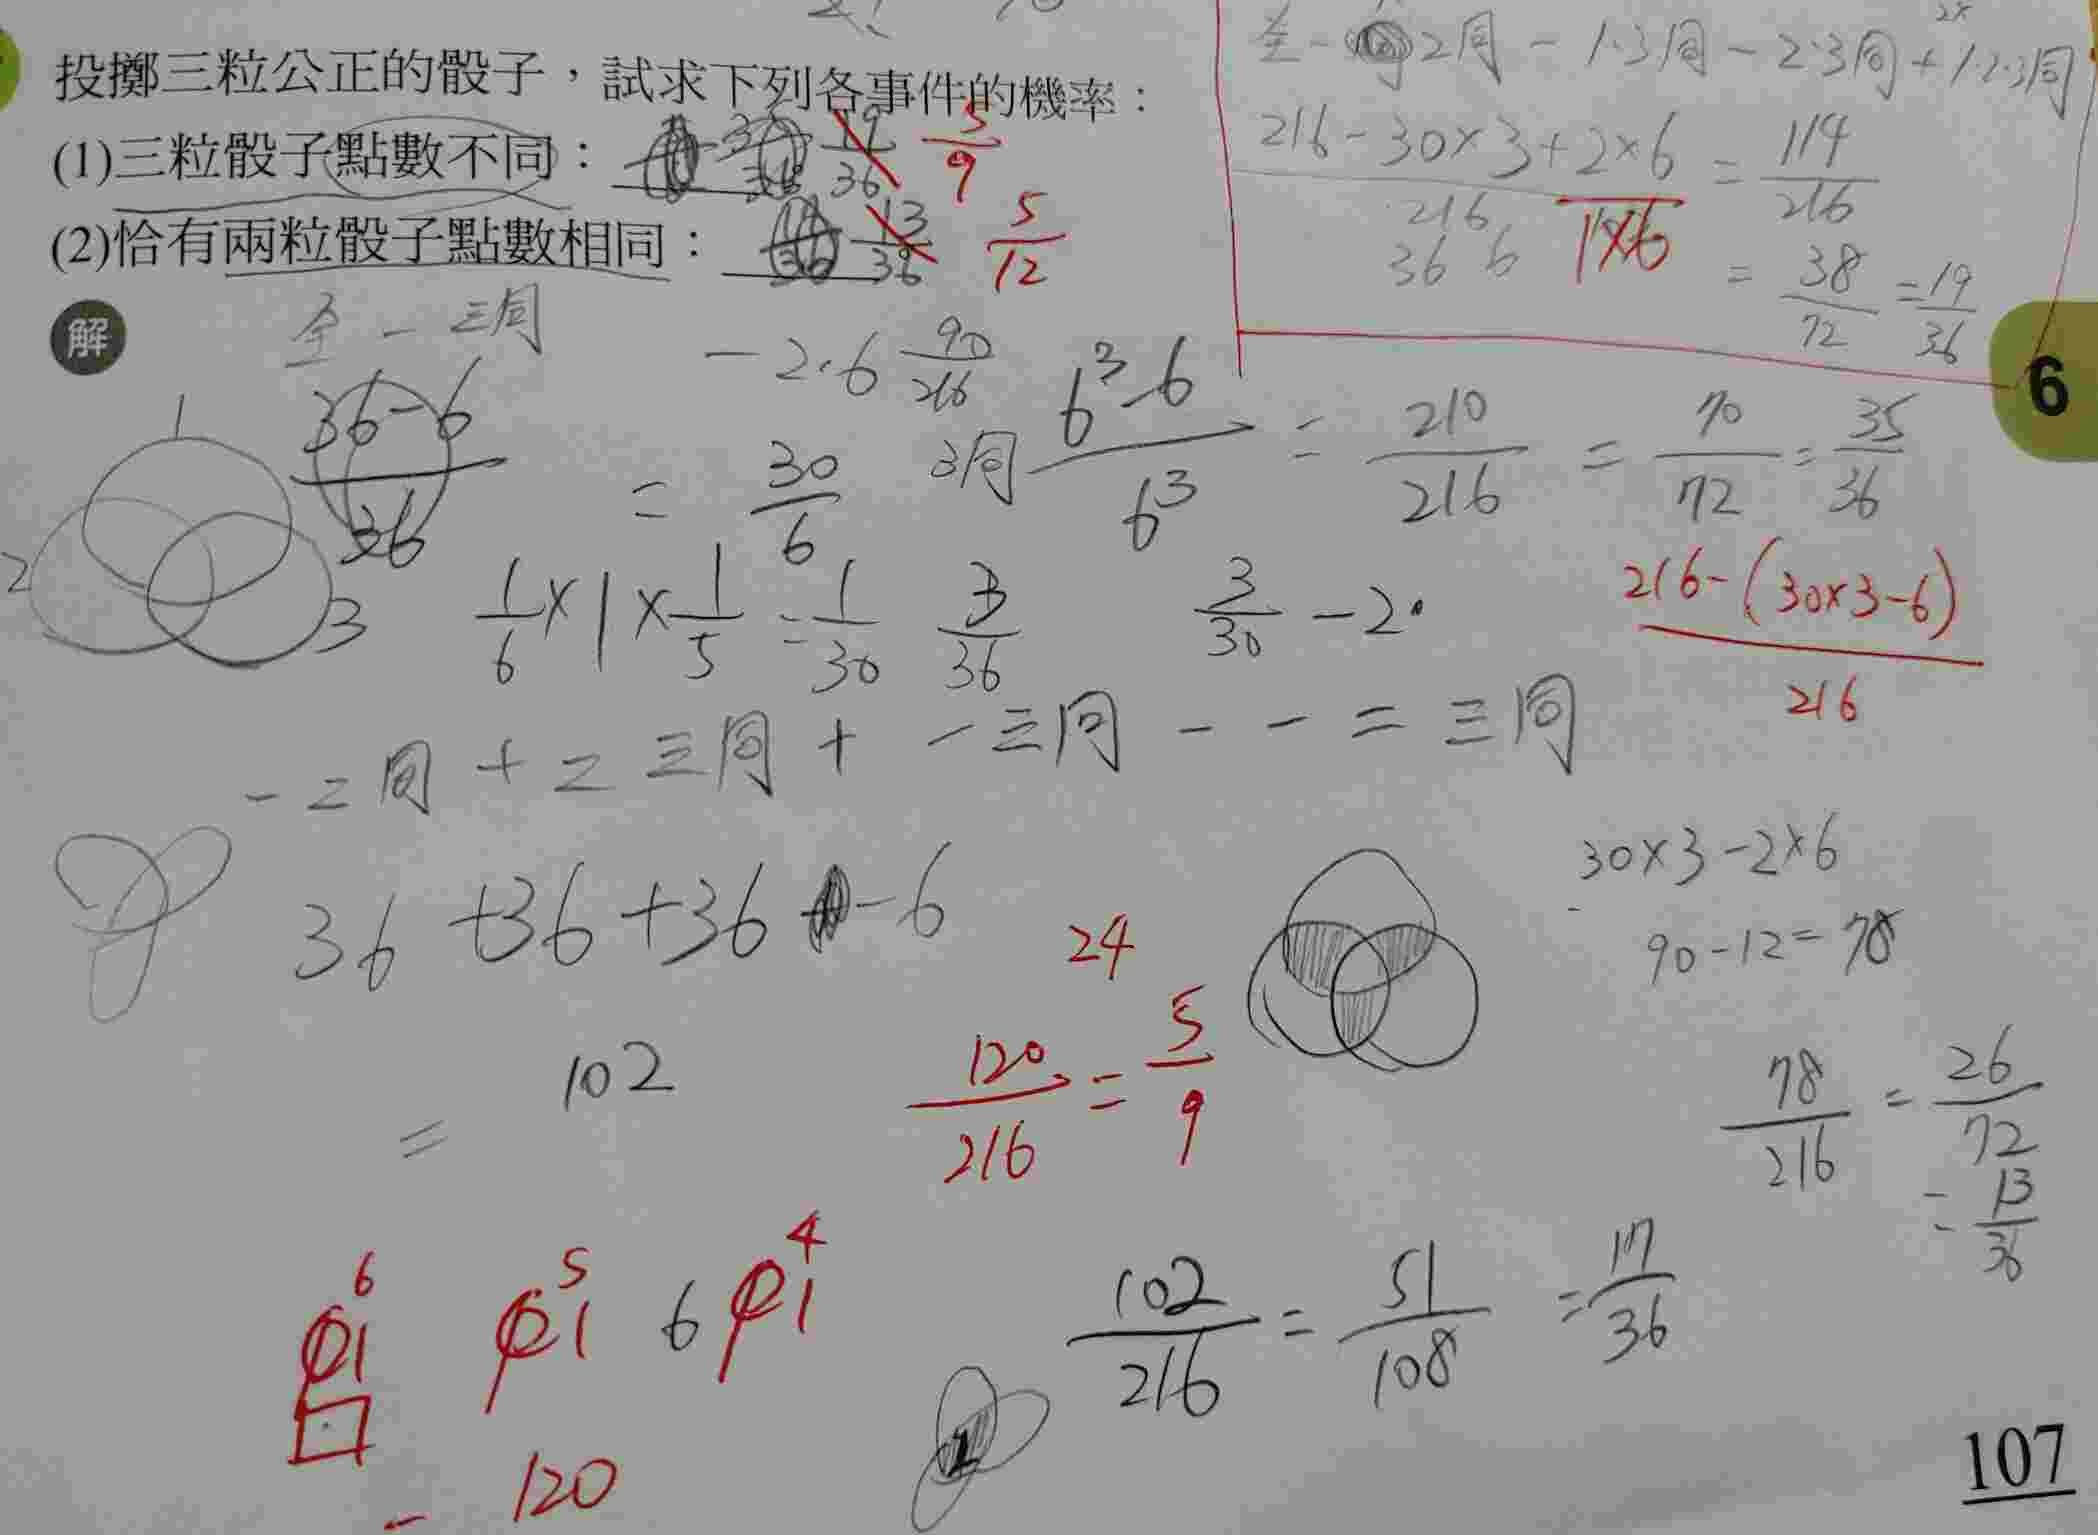 投擲三粒公正的骰子，試求下列各事件的機率：
(1)三粒骰子點數不同： 19/36 5/9
(2)恰有兩粒骰子點數相同： 13/36 5/12
解
全 - 2同 - 1·3同 - 2·3同 + 1·2·3同
(216-30×3+2×6)/216 = 114/216
36 6 1×6
= 38/72 = 19/36
全 - 三同
-2·6 90/216
(36-6)/36 = 30/6
3同 (6³-6)/6³ = 210/216 = 70/72 = 35/36
1
2
3
1/6 × 1 × 1/5 = 1/30 3/36 3/30 - 2·
(216-(30×3-6))/216
一二同 + 二三同 + 一三同 - 一二三同
36 + 36 + 36 - 6
= 102
30×3-2×6
90-12=78
78/216 = 26/72
= 13/36
24
120/216 = 5/9
6 5 6 4
102/216 = 51/108 = 17/36
120
6
107